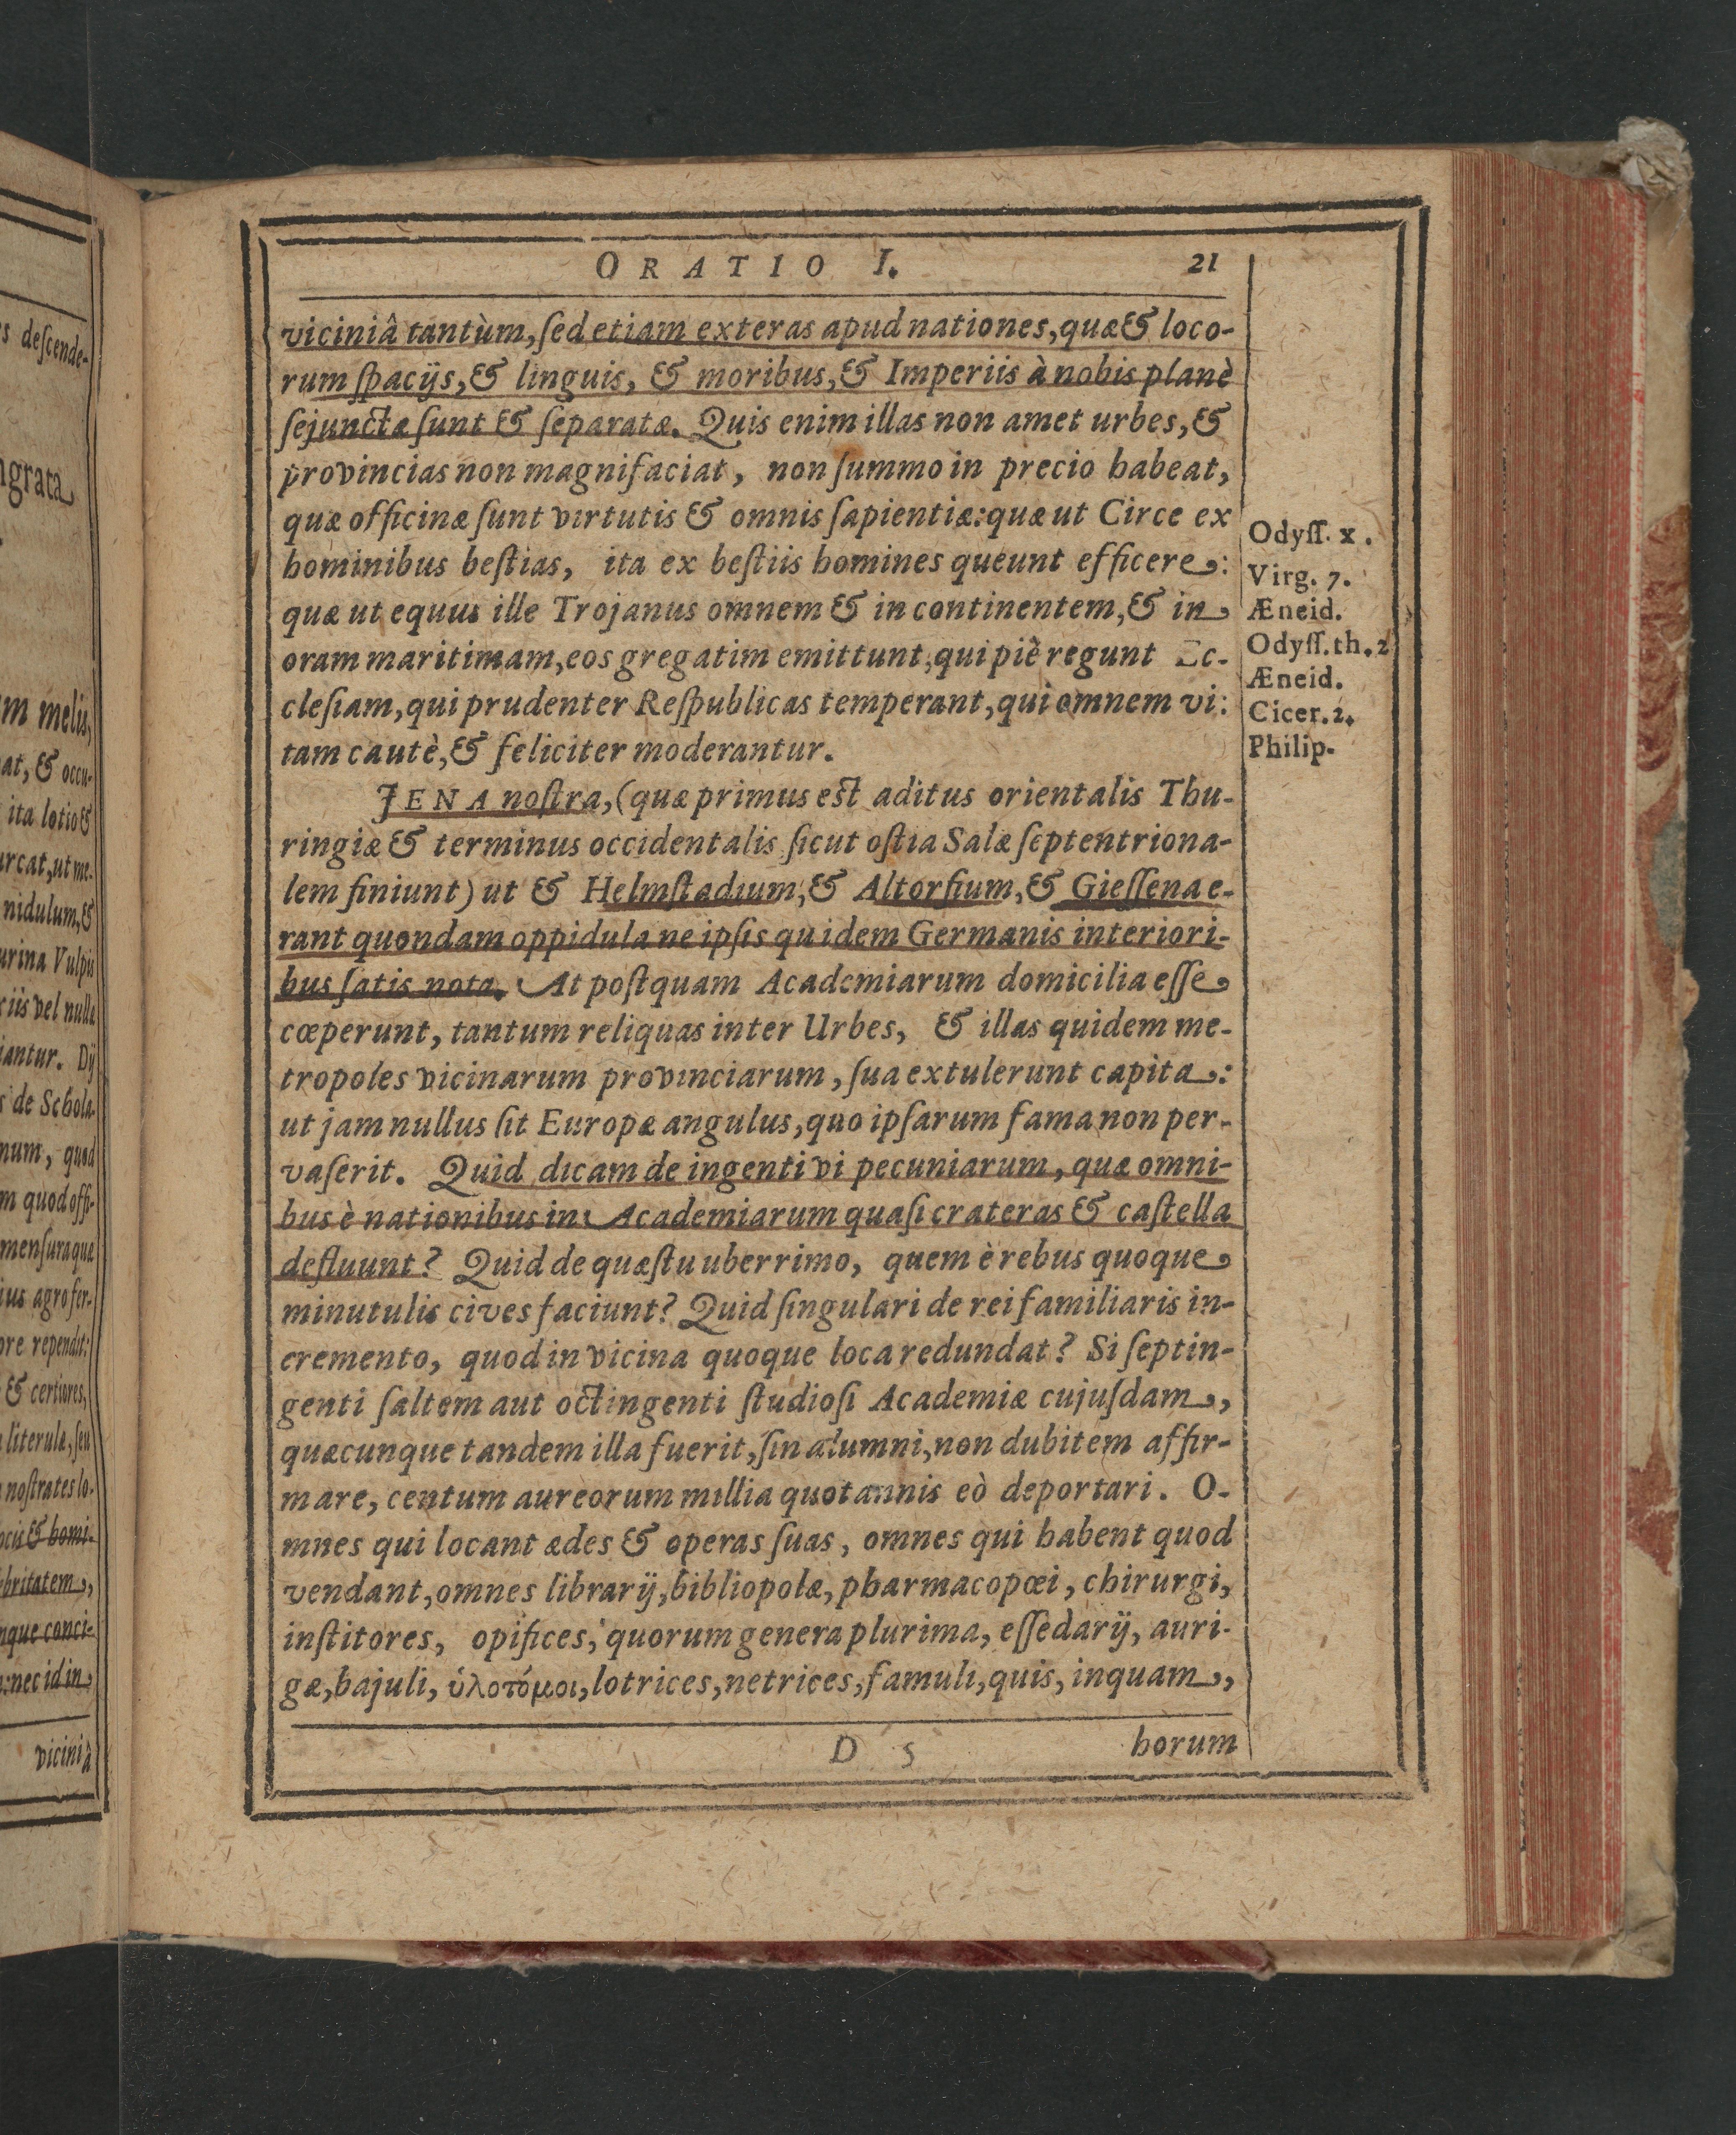 ORATIO I. 21
viciniâ tantùm, ſed etiam exteras apud nationes, quæ & loco-
rum ſpacijs, & linguis, & moribus, & Imperiis à nobis planè
ſejunctæ ſunt & ſeparatæ. Quis enim illas non amet urbes, &
provincias non magnifaciat, non ſummo in precio habeat,
quæ officinæ ſunt virtutis & omnis ſapientiæ: quæ ut Circe ex
hominibus beſtias, ita ex beſtiis homines queunt efficere:
quæ ut equus ille Trojanus omnem & in continentem, & in
oram maritimam, eos gregatim emittunt, qui piè regunt Ec-
cleſiam, qui prudenter Reſpublicas temperant, qui omnem vi:
tam cautè, & feliciter moderantur.
Odyſſ. x.
Virg. 7.
Æneid.
Odyſſ. th. 2
Æneid.
Cicer. 2.
Philip.
JENA noſtra, (quæ primus eſt aditus orientalis Thu-
ringiæ & terminus occidentalis ſicut oſtia Salæ ſeptentriona-
lem finiunt) ut & Helmſtadium, & Altorfium, & Gieſſena e-
rant quondam oppidula ne ipſis quidem Germanis interiori-
bus ſatis nota. At poſtquam Academiarum domicilia eſſe
cœperunt, tantum reliquas inter Urbes, & illas quidem me-
tropoles vicinarum provinciarum, ſua extulerunt capita:
ut jam nullus ſit Europæ angulus, quo ipſarum fama non per-
vaſerit. Quid dicam de ingenti vi pecuniarum, quæ omni-
bus è nationibus in Academiarum quaſi crateras & caſtella
defluunt? Quid de quæſtu uberrimo, quem è rebus quoque
minutulis cives faciunt? Quid ſingulari de rei familiaris in-
cremento, quod in vicina quoque loca redundat? Si ſeptin-
genti ſaltem aut octingenti ſtudioſi Academiæ cujuſdam,
quæcunque tandem illa fuerit, ſin alumni, non dubitem affir-
mare, centum aureorum millia quotannis eò deportari. O-
mnes qui locant ædes & operas ſuas, omnes qui habent quod
vendant, omnes librarij, bibliopolæ, pharmacopœi, chirurgi,
inſtitores, opifices, quorum genera plurima, eſſedarij, auri-
gæ, bajuli, ὑλοτόμοι, lotrices, netrices, famuli, quis, inquam,
D 5 horum